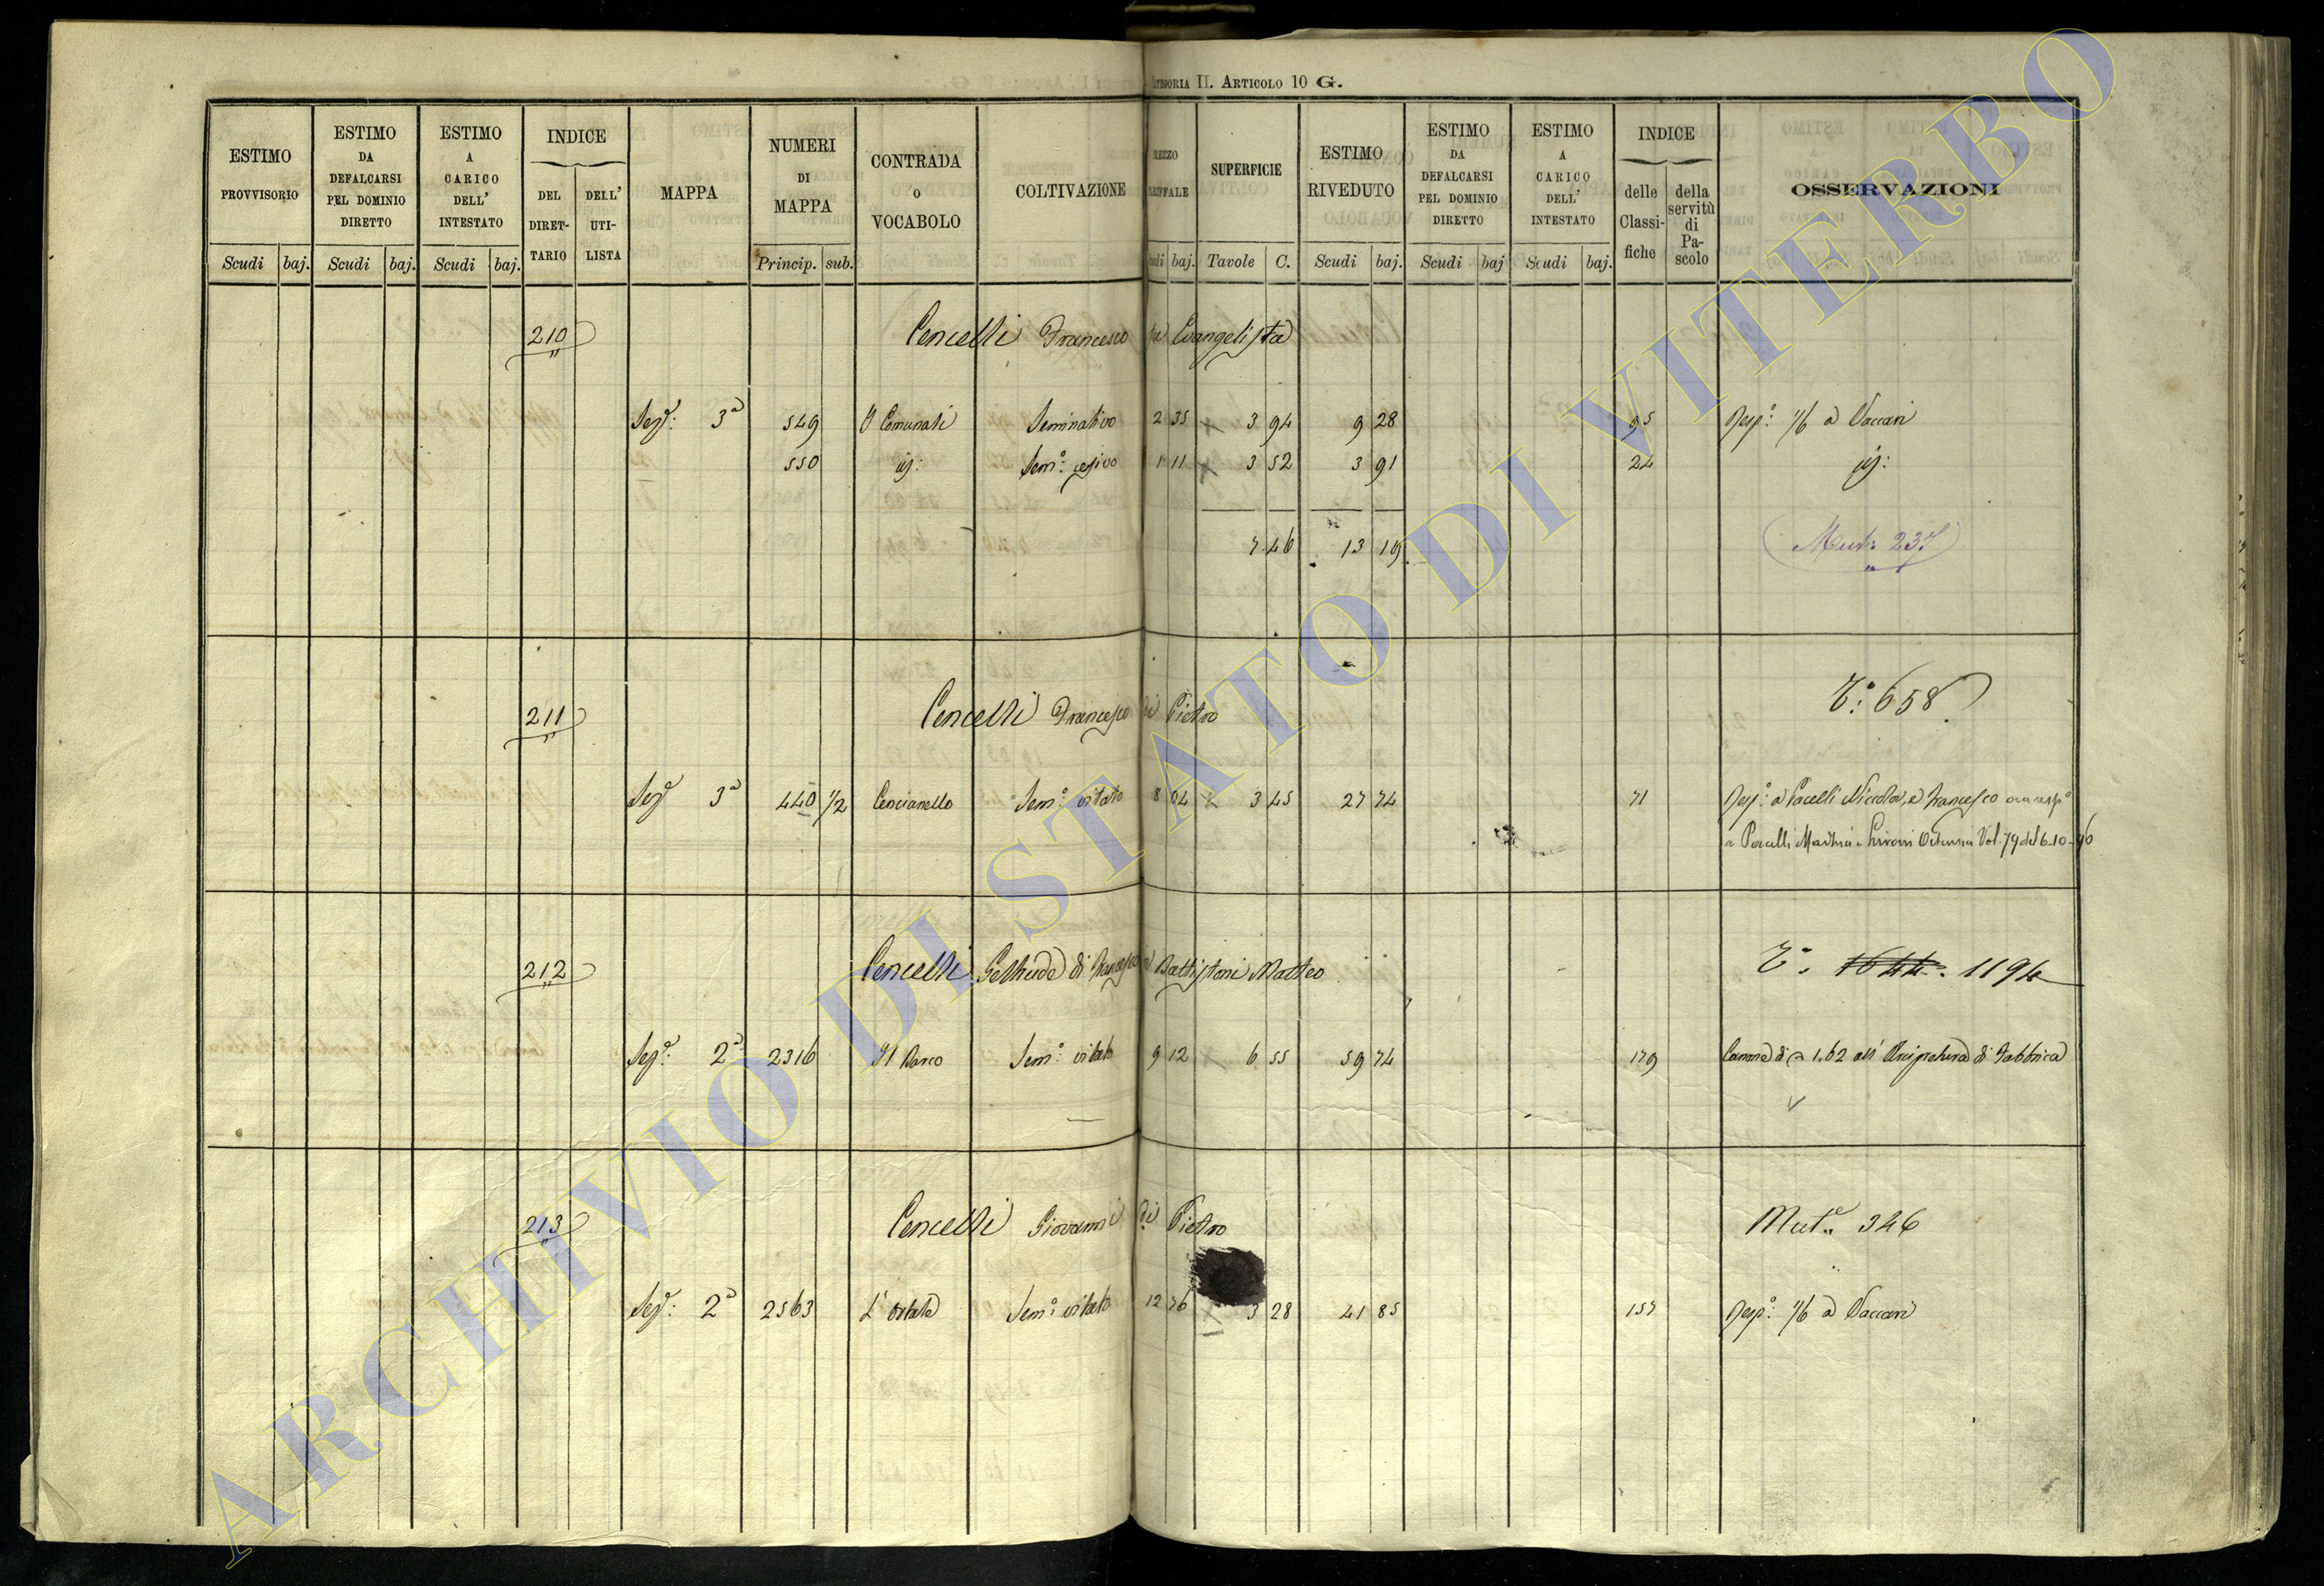 CATEGORIA II. ARTICOLO 10 G.
ESTIMO PROVVISORIO
ESTIMO DA DEFALCARSI PEL DOMINIO DIRETTO
ESTIMO A CARICO DELL' INTESTATO
INDICE
DEL DIRET-TARIO
DELL' UTI-LISTA
MAPPA
NUMERI DI MAPPA
CONTRADA o VOCABOLO
COLTIVAZIONE
PREZZO TARIFFALE
SUPERFICIE
ESTIMO RIVEDUTO
ESTIMO DA DEFALCARSI PEL DOMINIO DIRETTO
ESTIMO A CARICO DELL' INTESTATO
INDICE
delle Classi-fiche
della servitù di Pa-scolo
OSSERVAZIONI
Scudi baj. Scudi baj. Scudi baj. Princip. sub. Scudi baj. Tavole C. Scudi baj. Scudi baj Scudi baj.
210 Cencelli Francesco qd Evangelista
Segd: 3a 549 I Comunali Seminativo 2 35 3 94 9 28 95 Respo: 1/6 a Vaccari
550 id: Semo: cesivo 1 11 3 52 3 91 24 id:
7 46 13 19 Mut: 237
211 Cencelli Francesco di Pietro To: 658
Segd 3a 440 1/2 Cencianello Semo: vitato 8 04 3 45 27 74 71 Respo: a Pacelli Niccola, e Francesco ora respo
a Pacelli Vol. 79 del 6-10-96
212 Cencelli Geltrude di Francesco in Battistoni Matteo To: 1644. 1194
Segd: 2a 2316 Il Barco Semo: vitato 9 12 6 55 59 74 179 Canone di 1.62 all' Arcipretura di Fabbrica
213 Cencelli Giovanni di Pietro Mut.e 346
Segd: 2a 2563 L' Semo: vitato 12 76 3 28 41 85 157 Respo: 1/6 a Vaccari
ARCHIVIO DI STATO DI VITERBO